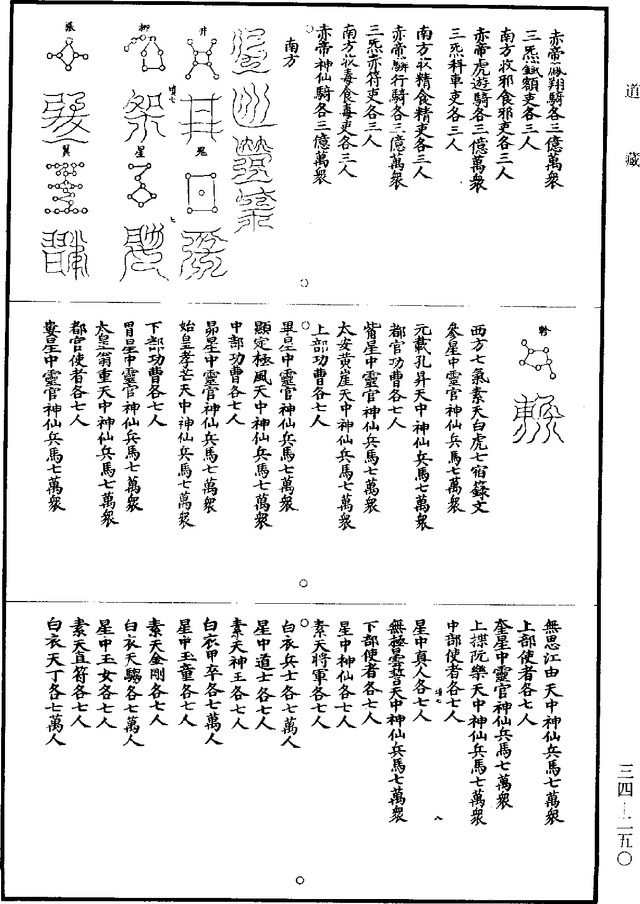 道藏
赤帝鳳翔騎各三億萬衆
三炁鋮額吏各三人
南方收邪食邪吏各三人
赤帝虎遊騎各三億萬衆
三炁科車吏各三人
南方收精食精吏各三人
赤帝騎行騎各三億萬衆
三炁赤符吏各三人
南方收毒食毒吏各三人
赤帝神仙騎各三億萬衆
南方
井
鬼
柳
星
張
翼
軫
西方七氣素天白虎七宿籙文
參星中靈官神仙兵馬七萬衆
元載孔昇天中神仙兵馬七萬衆
都官功曹各七人
觜星中靈官神仙兵馬七萬衆
太安黃崖天中神仙兵馬七萬衆
上部功曹各七人
畢星中靈官神仙兵馬七萬衆
顯定極風天中神仙兵馬七萬衆
中部功曹各七人
昴星中靈官神仙兵馬七萬衆
始皇孝芒天中神仙兵馬七萬衆
下部功曹各七人
胃星中靈官神仙兵馬七萬衆
太皇翁重天中神仙兵馬七萬衆
都官使者各七人
婁星中靈官神仙兵馬七萬衆
無思江由天中神仙兵馬七萬衆
上部使者各七人
奎星中靈官神仙兵馬七萬衆
上揲阮樂天中神仙兵馬七萬衆
中部使者各七人
星中真人各七人
無極曇誓天中神仙兵馬七萬衆
下部使者各七人
星中神仙各七人
素天將軍各七人
白衣兵士各七萬人
星中道士各七人
素天神王各七人
白衣甲卒各七萬人
星中玉童各七人
素天金剛各七人
白衣天騶各七萬人
星中玉女各七人
素天直符各七人
白衣天丁各七萬人
三四—二五〇